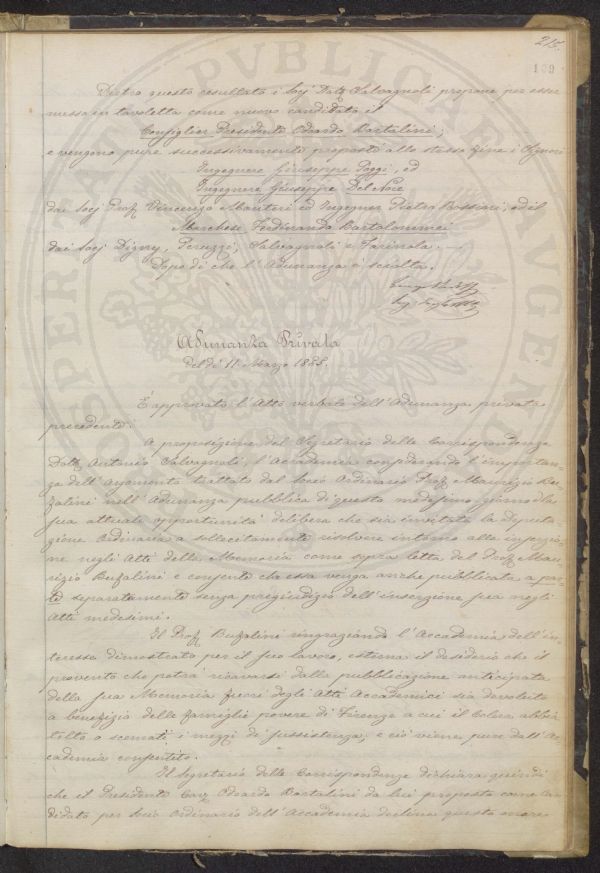 215.
109
Dietro questo resultato i Socj Dott. Salvagnoli propone per esser
messo in tavoletta come nuovo candidato il
Consiglier Presidente Odoardo Bartalini;
e vengono pure successivamente proposti allo stesso fine i Signori
Ingegnere Giuseppe Poggi, ed
Ingegnere Giuseppe Del Noce
dai Socj Prof. Vincenzo Manteri ed Ingegner Pietro Rossini; ed il
Marchese Ferdinando Bartolommei
dai Socj Digny, Peruzzi, Salvagnoli e Farinola.
Dopo di che l'Adunanza è sciolta.
Adunanza Privata
del dì 11 Marzo 1855.
È approvato l'Atto verbale dell'Adunanza privata
precedente.
A proposizione del Segretario delle Corrispondenze
Dott. Antonio Salvagnoli, l'Accademia considerando l'importan-
za dell'argomento trattato dal Socio Ordinario Prof. Maurizio Bu-
falini nell'Adunanza pubblica di questo medesimo giorno e la
sua attuale opportunità delibera che sia invitata la Deputa-
zione Ordinaria a sollecitamente risolvere intorno alla inserzio-
ne negli Atti della Memoria come sopra letta del Prof. Mau-
rizio Bufalini e consente che essa venga anche pubblicata a par-
te separatamente senza pregiudizio dell'inserzione sua negli
Atti medesimi.
Il Prof. Bufalini ringraziando l'Accademia dell'in-
teresse dimostrato per il suo lavoro, esterna il desiderio che il
provento che potrà ricavarsi dalla pubblicazione anticipata
della sua Memoria fuori degli Atti Accademici sia devoluto
a benefizio delle famiglie povere di Firenze a cui il Colera abbia
tolto o scemati i mezzi di sussistenza; e ciò viene pure dall'Ac-
cademia consentito.
Il Segretario delle Corrispondenze dichiara quindi
che il Presidente Cav. Odoardo Bartalini da lui proposto come Can-
didato per Socio Ordinario dell'Accademia declina questo onore
PROSPERITATI PVBLICAE AVGENDAE